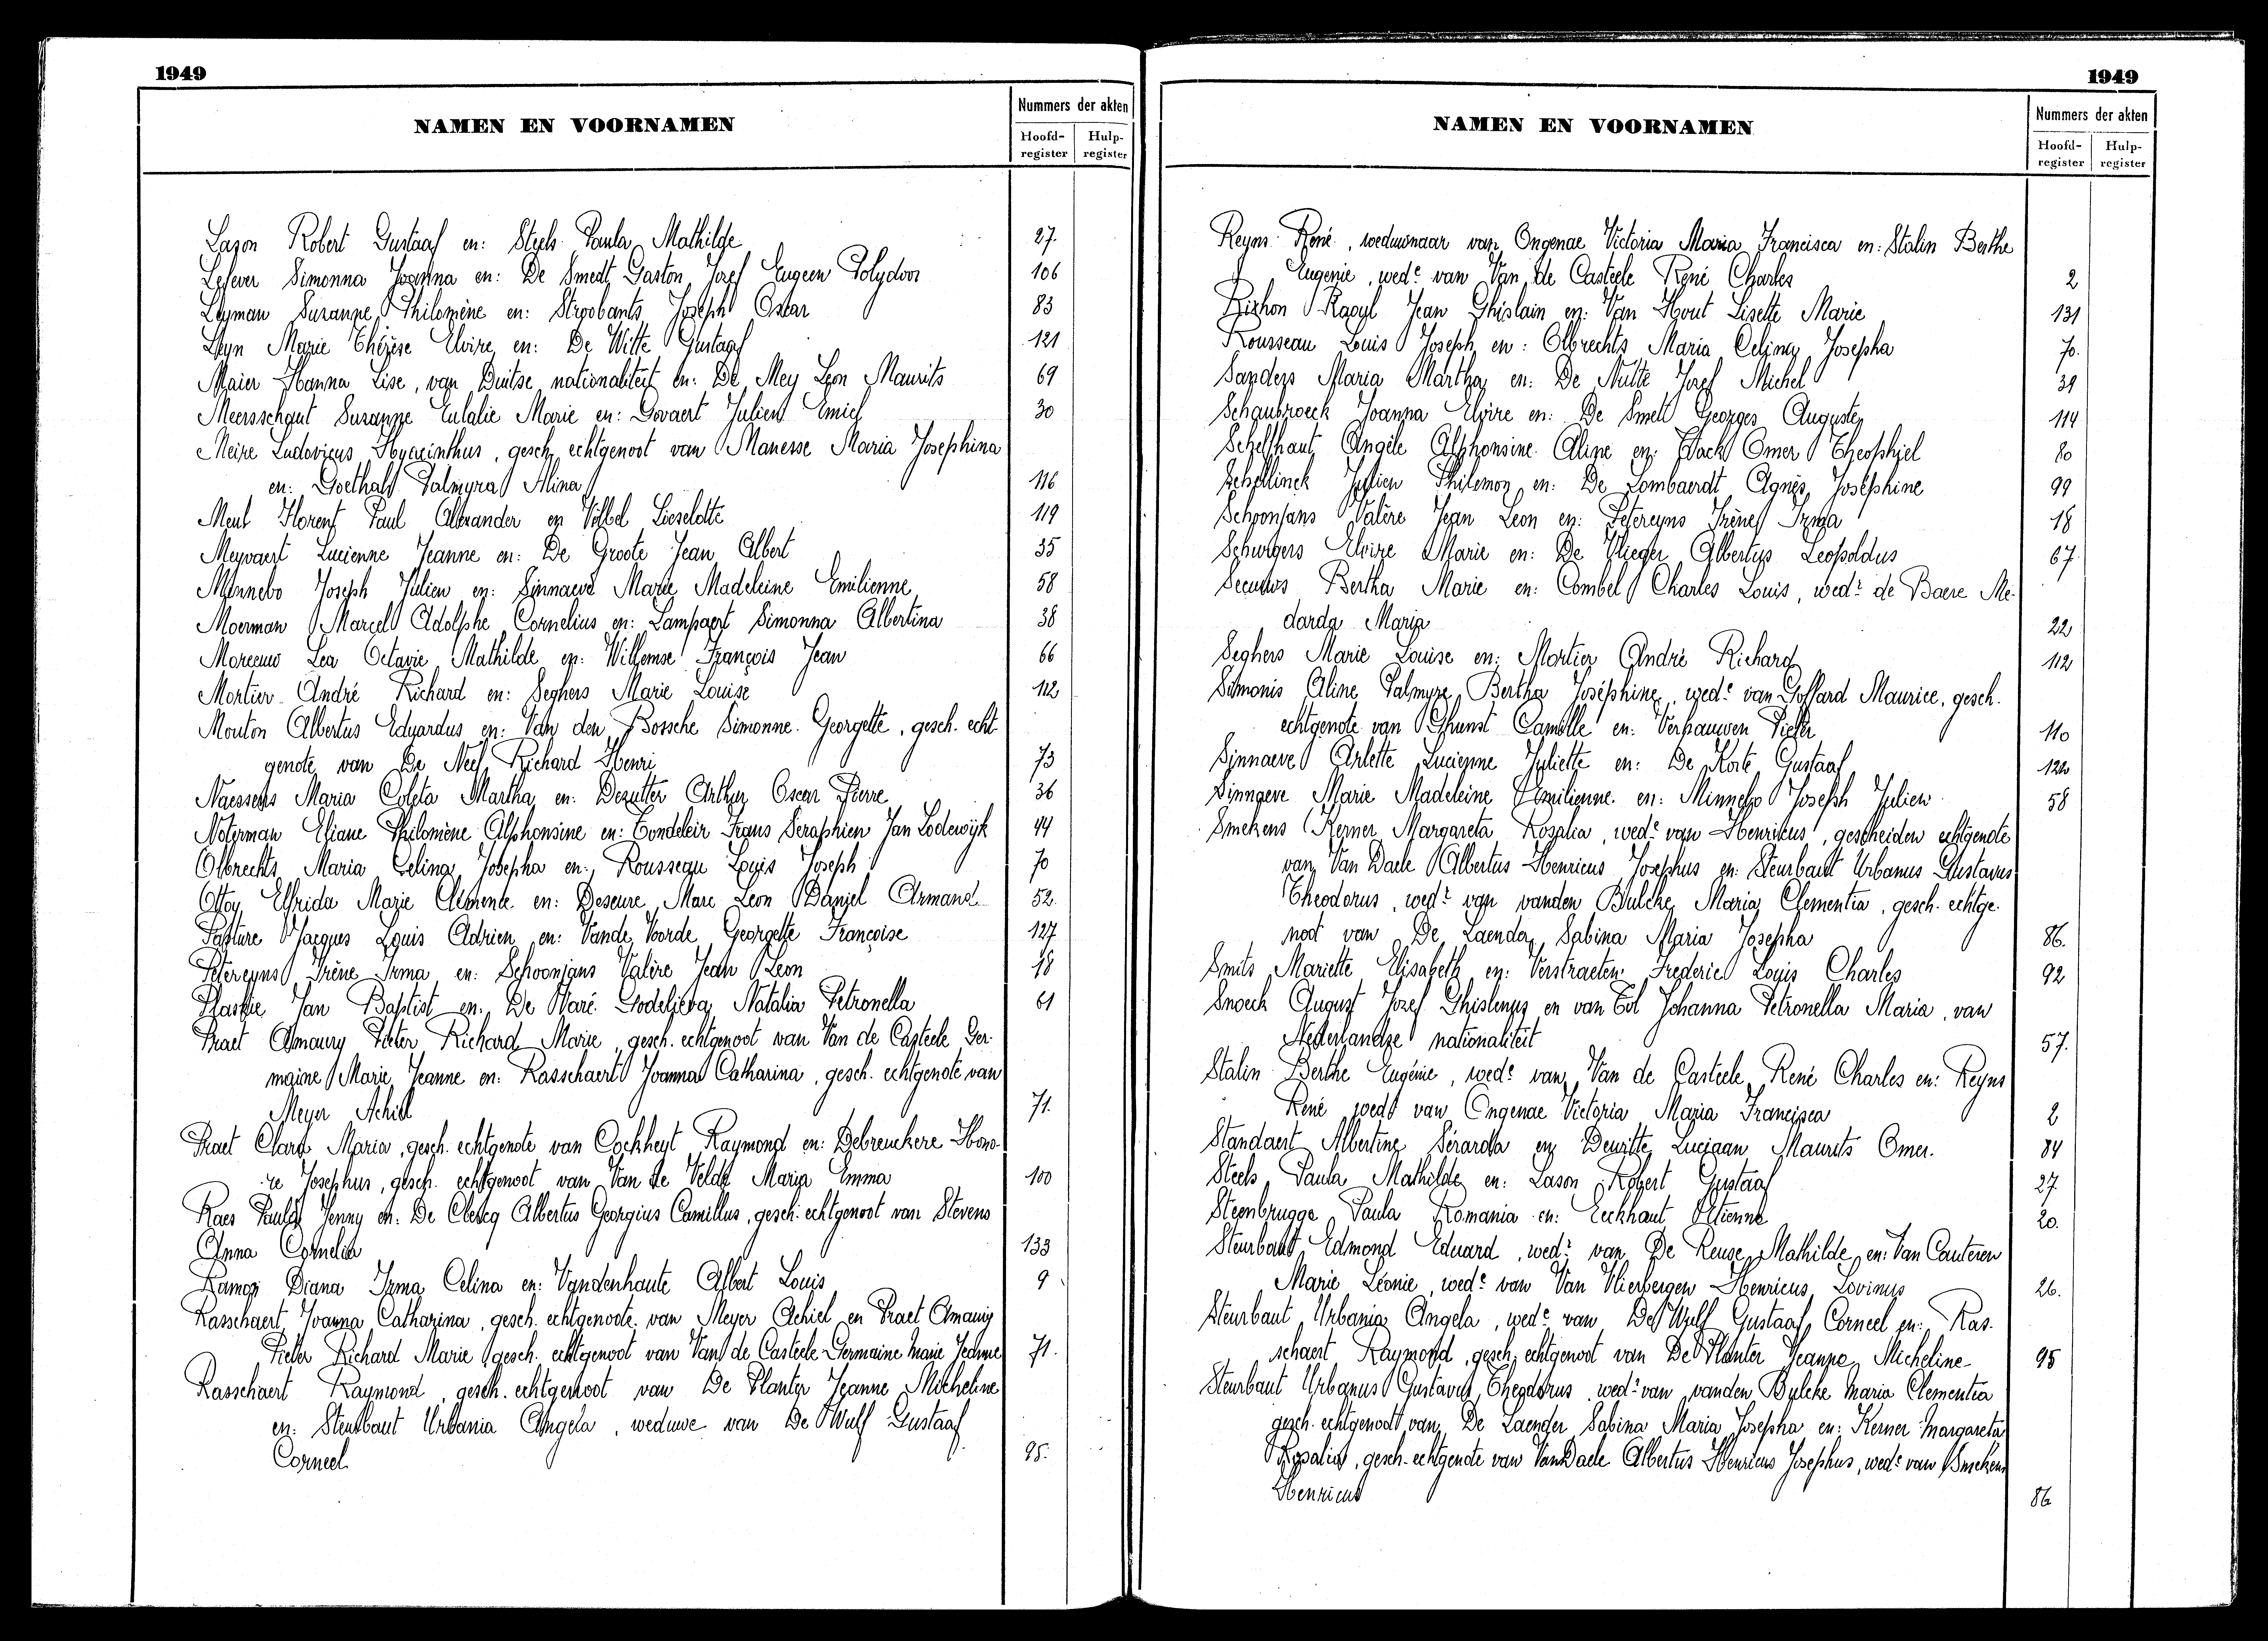 1949
NAMEN EN VOORNAMEN
Nummers der akten
Hoofd-register
Hulp-register
Lason Robert Gustaaf en: Steels Paula Mathilde 27.
Lefever Simonna Joanna en: De Smedt Gaston Jozef Eugeen Polydoor 106
Leyman Suzanne Philomène en: Stroobants Joseph Oscar 83
Leyn Marie Thérèse Elvire en: De Witte Gustaaf 121
Maier Hanna Lise, van Duitse nationaliteit en: De Mey Leon Maurits 69
Meersschaut Suzanne Eulalie Marie en: Govaert Julien Emiel 30
Meire Ludovicus Hyacinthus, gesch. echtgenoot van Manesse Maria Josephina
en: Goethals Palmyra Alina 116
Meul Florent Paul Alexander en Völbel Lieselotte 119
Meyvaert Lucienne Jeanne en: De Groote Jean Albert 35
Minnebo Joseph Julien en: Sinnaeve Marie Madeleine Emilienne 58
Moerman Marcel Adolphe Cornelius en: Lampaert Simonna Albertina 38
Moreeuw Lea Octavie Mathilde en: Willemse François Jean 66
Mortier André Richard en: Seghers Marie Louise 112
Mouton Albertus Eduardus en: Van den Bossche Simonne Georgette, gesch. echt-
genote van De Neef Richard Henri 73
Naessens Maria Coleta Martha en: Dezutter Arthur Oscar Pierre 36
Noterman Eliane Philomène Alphonsine en: Tondeleir Frans Seraphien Jan Lodewijk 44
Olbrechts Maria Celina Josepha en: Rousseau Louis Joseph 70
Ottoy Elfrida Marie Clémente en: Deseure Marc Leon Daniel Armand 52.
Pasture Jacques Louis Adrien en: Vande Voorde Georgette Françoise 127
Petereyns Irène Irma en: Schoonjans Valère Jean Leon 18
Plasqie Jan Baptist en: De Waré Godelieva Natalia Petronella 61
Praet Amaury Pieter Richard Marie, gesch. echtgenoot van Van de Casteele Ger-
maine Marie Jeanne en: Rasschaert Joanna Catharina, gesch. echtgenote van
Meyer Achiel 71.
Praet Clara Maria, gesch. echtgenote van Cockheyt Raymond en: Debreuckere Hono-
re Josephus, gesch. echtgenoot van Van de Velde Maria Emma 100
Raes Paula Jenny en: De Clercq Albertus Georgius Camillus, gesch. echtgenoot van Stevens
Anna Cornelia 133
Ramon Diana Irma Celina en: Vandenhaute Albert Louis 9
Rasschaert Joanna Catharina, gesch. echtgenoote van Meyer Achiel en Praet Amaury
Pieter Richard Marie gesch. echtgenoot van Van de Casteele Germaine Marie Jeanne 71.
Rasschaert Raymond, gesch. echtgenoot van De Planter Jeanne Micheline
en: Steurbaut Urbania Angela, weduwe van De Wulf Gustaaf
Corneel 95.
1949
NAMEN EN VOORNAMEN
Nummers der akten
Hoofd-register
Hulp-register
Reyns René, weduwnaar van Ongenae Victoria Maria Francisca en: Stalin Berthe
Eugenie, wede van Van de Casteele René Charles 2
Rizhon Raoul Jean Ghislain en: Van Hout Lisette Marie 131
Rousseau Louis Joseph en: Olbrechts Maria Celina Josepha 70.
Sanders Maria Martha en: De Nutte Jozef Michel 39
Schaubroeck Joanna Elvire en: De Smet Georges Auguste 114
Schelfhaut Angèle Alphonsine Aline en: Hack Omer Theophiel 80
Schellinck Julien Philemon en: De Lombaerdt Agnès Joséphine 99
Schoonjans Valère Jean Leon en: Petereyns Irène Irma 18
Schurgers Elvire Marie en: De Vlieger Albertus Leopoldus 67
Seeuws Bertha Marie en: Combel Charles Louis, wedr de Baere Me-
darda Maria 22
Seghers Marie Louise en: Mortier André Richard 112
Simonis Aline Palmyre Bertha Joséphine, wede van Goffard Maurice, gesch.
echtgenote van Dhunst Camille en: Verhauwen Pieter 110
Sinnaeve Arlette Lucienne Juliette en: De Korte Gustaaf 122
Sinnaeve Marie Madeleine Emilienne en: Minnebo Joseph Julien 58
Smekens Kerner Margareta Rosalia, wede van Henricus, gescheiden echtgenote
van Van Daele Albertus Henricus Josephus en: Steurbaut Urbanus Gustavus
Theodorus, wedr van vanden Bulcke Maria Clementia, gesch. echtge-
noot van De Laender Sabina Maria Josepha 86.
Smits Mariette Elisabeth en: Verstraeten Frederic Louis Charles 92
Snoeck August Jozef Ghislenus en van Tol Johanna Petronella Maria, van
Nederlandse nationaliteit 57.
Stalin Berthe Eugénie, wede van Van de Casteele René Charles en: Reyns
René wedr van Ongenae Victoria Maria Francisca 2
Standaert Albertine Sérarda en: Dewitte Luciaan Maurits Omer. 84
Steels Paula Mathilde en: Lason Robert Gustaaf 27
Steenbrugge Paula Romania en: Eeckhaut Etienne 20.
Steurbaut Edmond Eduard, wedr van De Reuse Mathilde en: Van Cauteren
Marie Léonie, wede van Van Vlierbergen Henricus Lovinus 26.
Steurbaut Urbania Angela, wede van De Wulf Gustaaf Corneel en: Ras-
schaert Raymond, gesch. echtgenoot van De Planter Jeanne Micheline 95
Steurbaut Urbanus Gustavus Theodorus, wedr van vanden Bulcke Maria Clementia
gesch. echtgenoot van De Laender Sabina Maria Josepha en: Kerner Margareta
Rosalia, gesch. echtgenote van VanDaele Albertus Henricus Josephus, wede van Smekens
Henricus 86